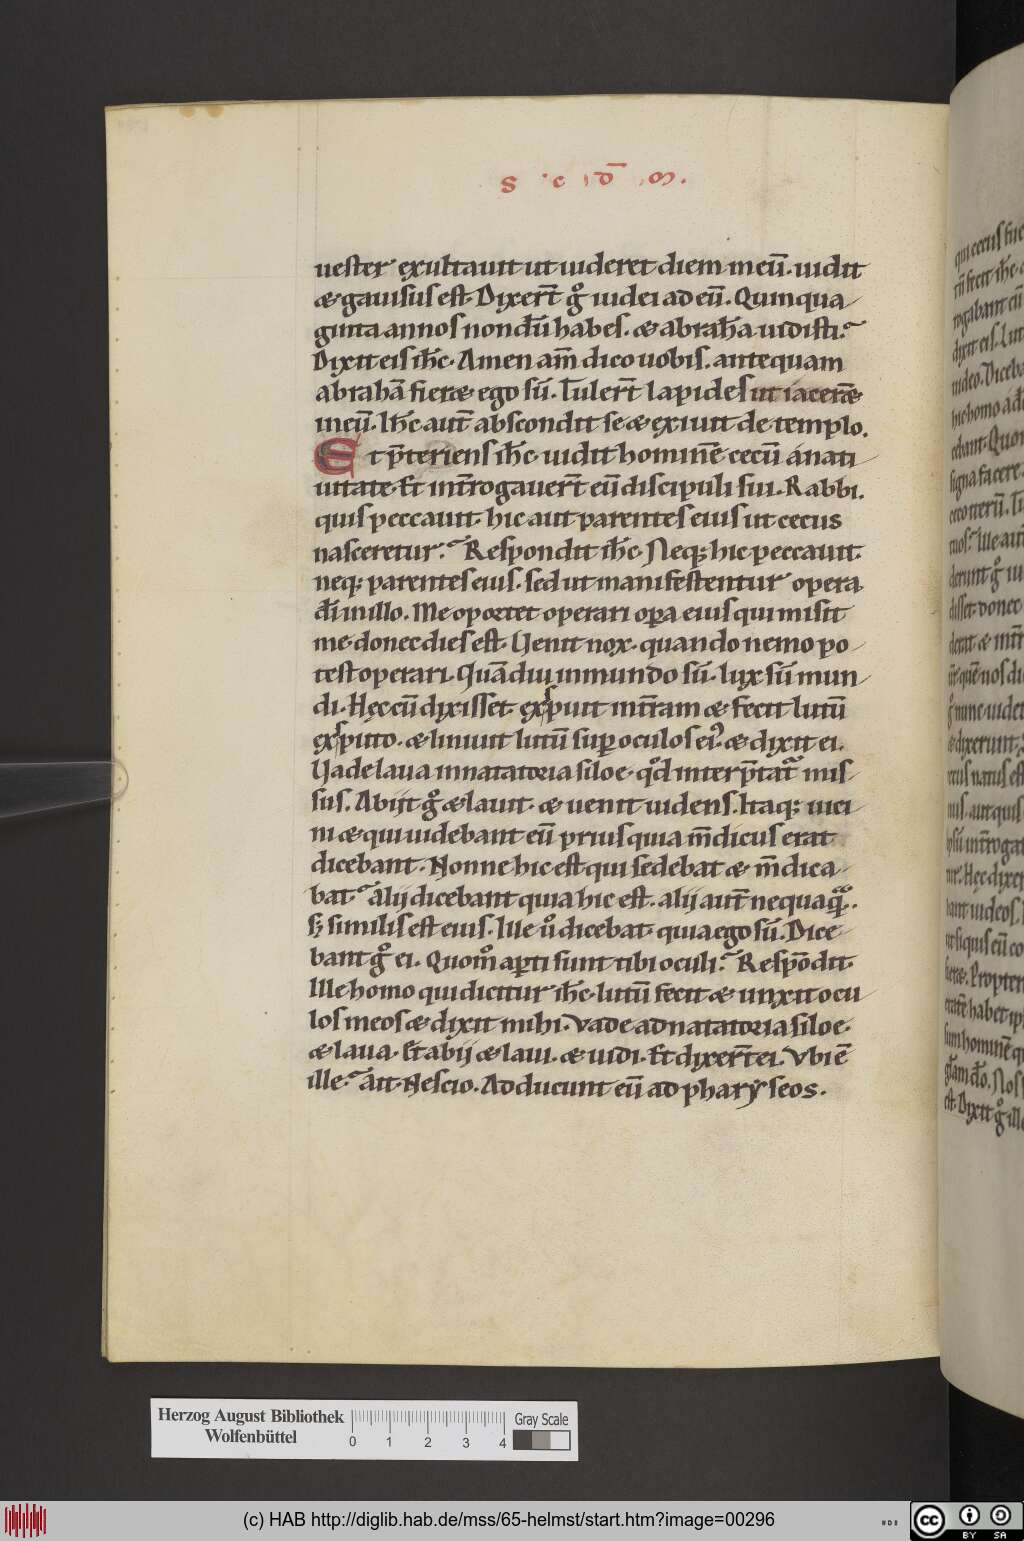 S · C · D̄ · M ·
uester exultauit ut uideret diem meū. uidit
& gauisus est. Dixer̄t gͦ iudei ad eū. Quinqua
ginta annos nondū habes. & abrahā uidisti?
Dixit eis ih̄c. Amen am̄ dico uobis. antequam
abrahā fier& ego sū. Tuler̄t lapides ut iacer&
in eū. Ih̄c aut̄ abscondit se & exiuit de templo.
Et p̄teriens ih̄c. uidit hominē cecū á nati
uitate. Et int̄rogauer̄t eū discipuli sui. Rabbi.
quis peccauit. hic aut parentes eius ut cecus
nasceretur? Respondit ih̄c. Neq; hic peccauit.
neq; parentes eius. sed ut manifestentur opera
dī in illo. Me oportet operari oꝑa eius qui misit
me donec dies est. Uenit nox. quando nemo po
test operari. Quādiu in mundo sū. lux sū mun
di. Hęc cū dixisset. exspuit int̄ram & fecit lutū
ex sputo. & liniuit lutū suꝑ oculos ei᷒ & dixit ei.
Uade laua in natatoria siloe. qd̄ interp̄tat᷑ mis
sus. Abijt gͦ & lauit. & uenit uidens. Itaq; uici
ni & qui uidebant eū prius quia m̄dicus erat
dicebant. Nonne hic est qui sedebat & m̄dica
bat? alij dicebant quia hic est. alij aut̄ nequaqᷓ.
s; similis est eius. Ille uͦ dicebat. quia ego sū. Dice
bant gͦ ei. Quomͦ aꝑti sunt tibi oculi? Respōdit.
Ille homo qui dicitur ih̄c. lutū fecit & unxit ocu
los meos & dixit mihi. Vade ad natatoria siloe.
& laua. Et abij & laui. & uidi. Et dixer̄t ei. Vbi ē
ille? ait. Nescio. Adducunt eū ad pharyseos.
Herzog August Bibliothek
Wolfenbüttel
0 1 2 3 4
Gray Scale
(c) HAB http://diglib.hab.de/mss/65-helmst/start.htm?image=00296
cc BY SA